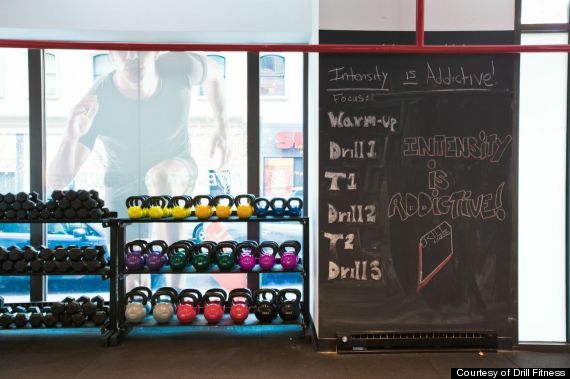 Intensity is Addictive!
Focus:
Warm-up
Drill 1
T1
Drill 2
T2
Drill 3
INTENSITY
is
ADDICTIVE!
Courtesy of Drill Fitness